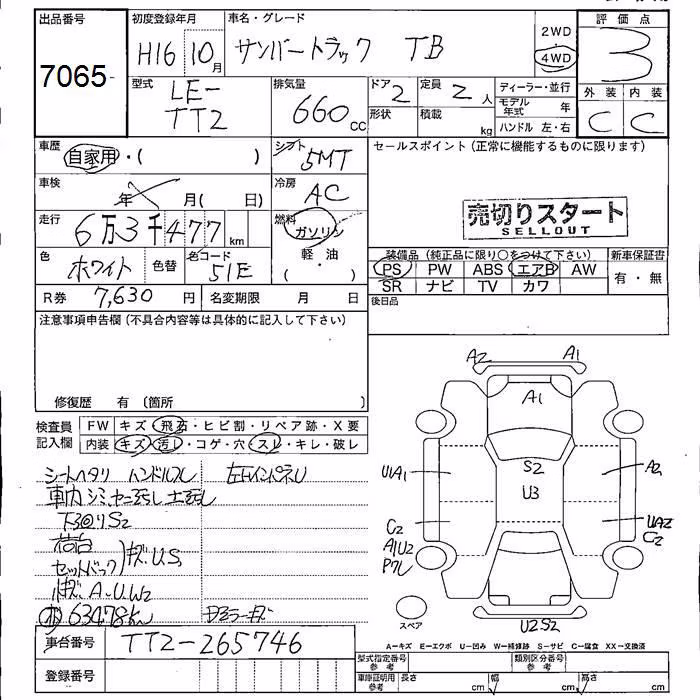 出品番号 初度登録年月 車名・グレード 評価点
7065 H16 10月 サンバートラック TB 2WD 4WD 3
型式 LE-TT2 排気量 660cc ドア 2 定員 2人 ディーラー・並行 外装 内装
形状 積載 kg モデル年式 年 C C
ハンドル 左・右
車歴 自家用・( ) シフト 5MT セールスポイント(正常に機能するものに限ります)
車検 年 月( 日) 冷房 AC
走行 6万3千477km 燃料 ガソリン 軽・油 売切りスタート
SELLOUT
色 ホワイト 色替 色コード 51E 装備品(純正品に限り○をつけて下さい) 新車保証書
PS PW ABS エアB AW 有・無
SR ナビ TV カワ
R券 7,630円 名変期限 月 日 後日品
注意事項申告欄(不具合内容等は具体的に記入して下さい)
修復歴 有(箇所
検査員記入欄 FW キズ・飛石・ヒビ割・リペア跡・X要
内装 キズ・汚レ・コゲ・穴・スレ・キレ・破レ
シートヘタリ ハンドルスレ
下回りS2
荷台
セットバック キズ.U.S.
キズ.A.U.W2
63478km
A2 A1
A1
S2
U3
U1A1 A2
C2 UA2
A1U2 C2
スペア U2S2
A=キズ E=エクボ U=凹み W=補修跡 S=サビ C=腐食 XX=交換済
車台番号 TT2-265746
登録番号
型式指定番号 参考 類別区分番号 参考
車庫証明用 参考 長さ cm 幅 cm 高さ cm